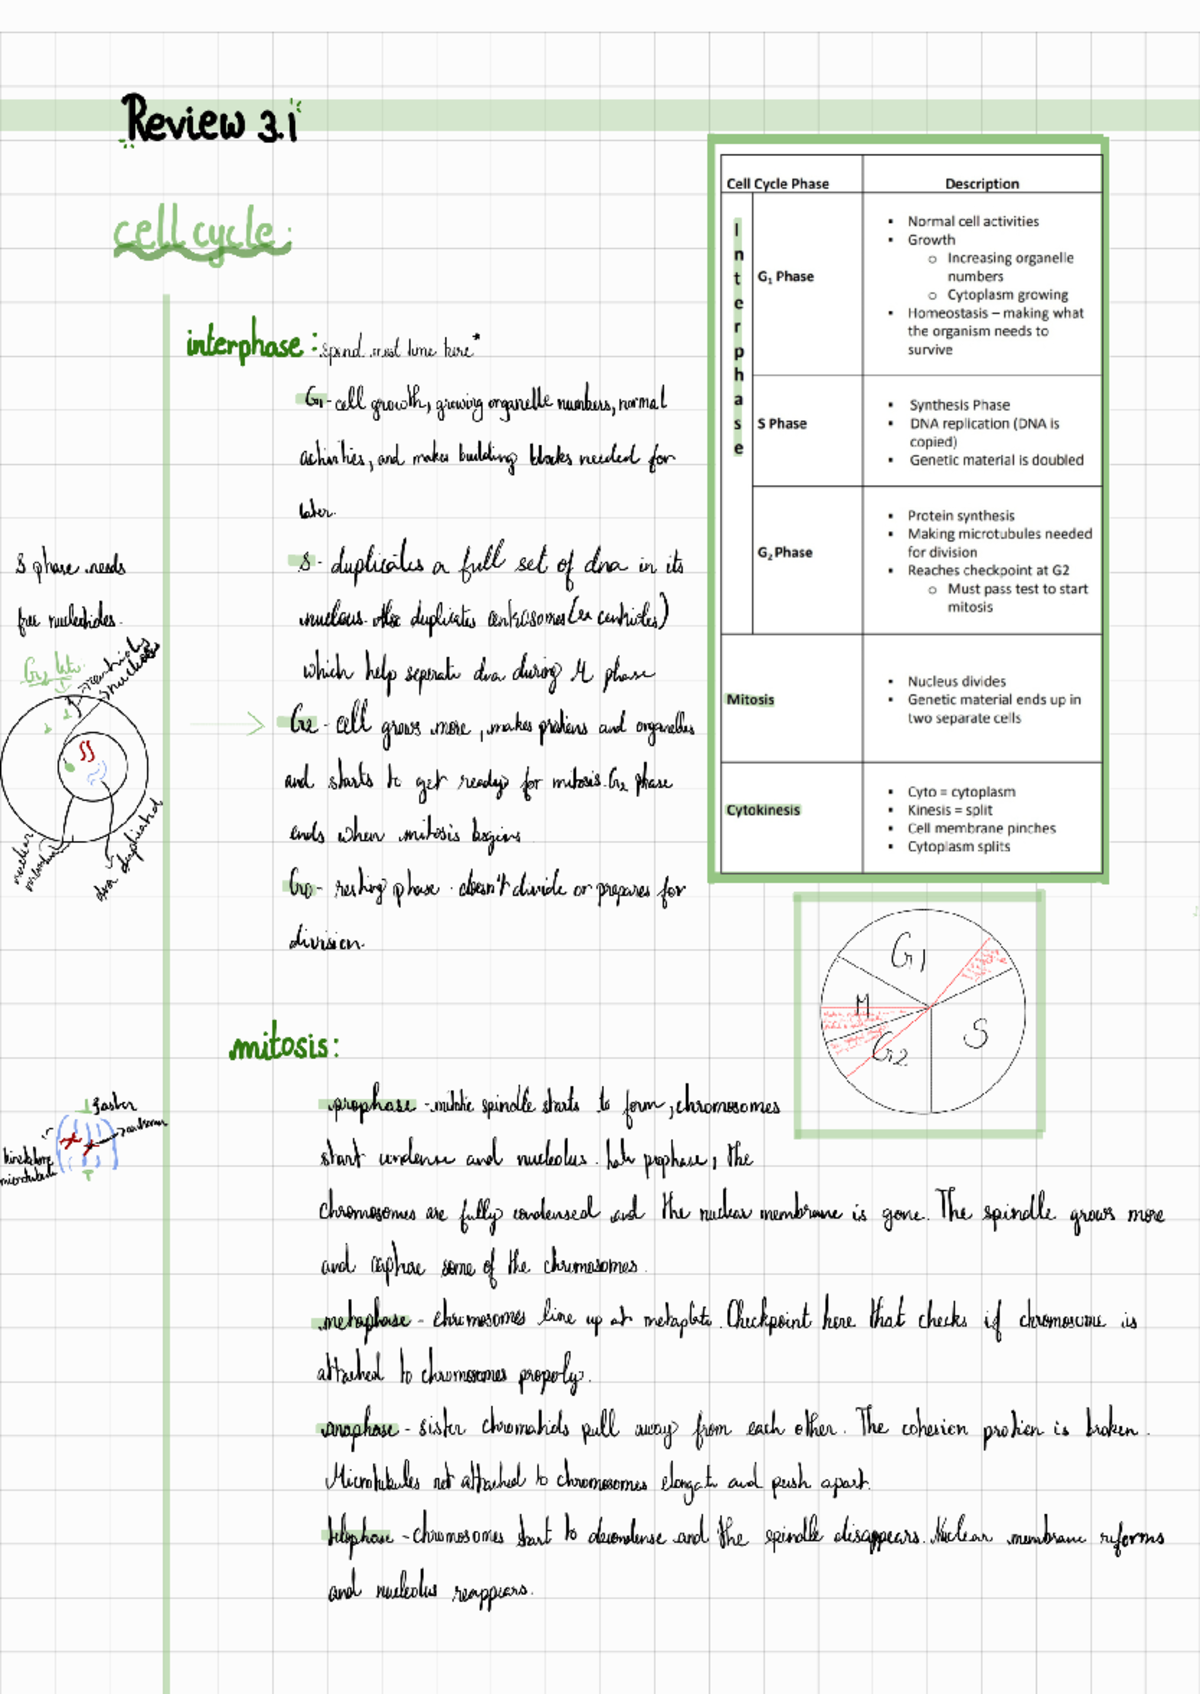 Review 3.1
cell cycle.
interphase: spend most time here*
G1 - cell growth, growing organelle numbers, normal
activities, and makes building blocks needed for
later.
S - duplicates a full set of dna in its
nucleus. Also duplicates centrosomes (ex centrioles)
which help seperate dna during M phase
G2 - cell grows more, makes protiens and organelles
and starts to get ready for mitosis. G2 phase
ends when mitosis begins
G0 - resting phase. doesn't divide or prepares for
division.
S phase needs
free nucleotides.
G2 late
centrioles
nucleolus
nuclear
dna duplicated
Cell Cycle Phase Description
Interphase
G1 Phase
▪ Normal cell activities
▪ Growth
o Increasing organelle
numbers
o Cytoplasm growing
▪ Homeostasis – making what
the organism needs to
survive
S Phase
▪ Synthesis Phase
▪ DNA replication (DNA is
copied)
▪ Genetic material is doubled
G2 Phase
▪ Protein synthesis
▪ Making microtubules needed
for division
▪ Reaches checkpoint at G2
o Must pass test to start
mitosis
Mitosis
▪ Nucleus divides
▪ Genetic material ends up in
two separate cells
Cytokinesis
▪ Cyto = cytoplasm
▪ Kinesis = split
▪ Cell membrane pinches
▪ Cytoplasm splits
G1
M
G2
S
mitosis:
prophase - mitotic spindle starts to form, chromosomes
start condense and nucleolus. late prophase, the
chromosomes are fully condensed and the nuclear membrane is gone. The spindle grows more
and captures some of the chromosomes.
metaphase - chromosomes line up at metaplate. Checkpoint here that checks if chromosome is
attached to chromosomes properly.
anaphase - sister chromatids pull away from each other. The cohesion protien is broken.
Microtubules not attached to chromosomes elongate and push apart.
telophase - chromosomes start to decondense and the spindle disappears. Nuclear membrane reforms
and nucleolus reappears.
kinetochore
microtubule